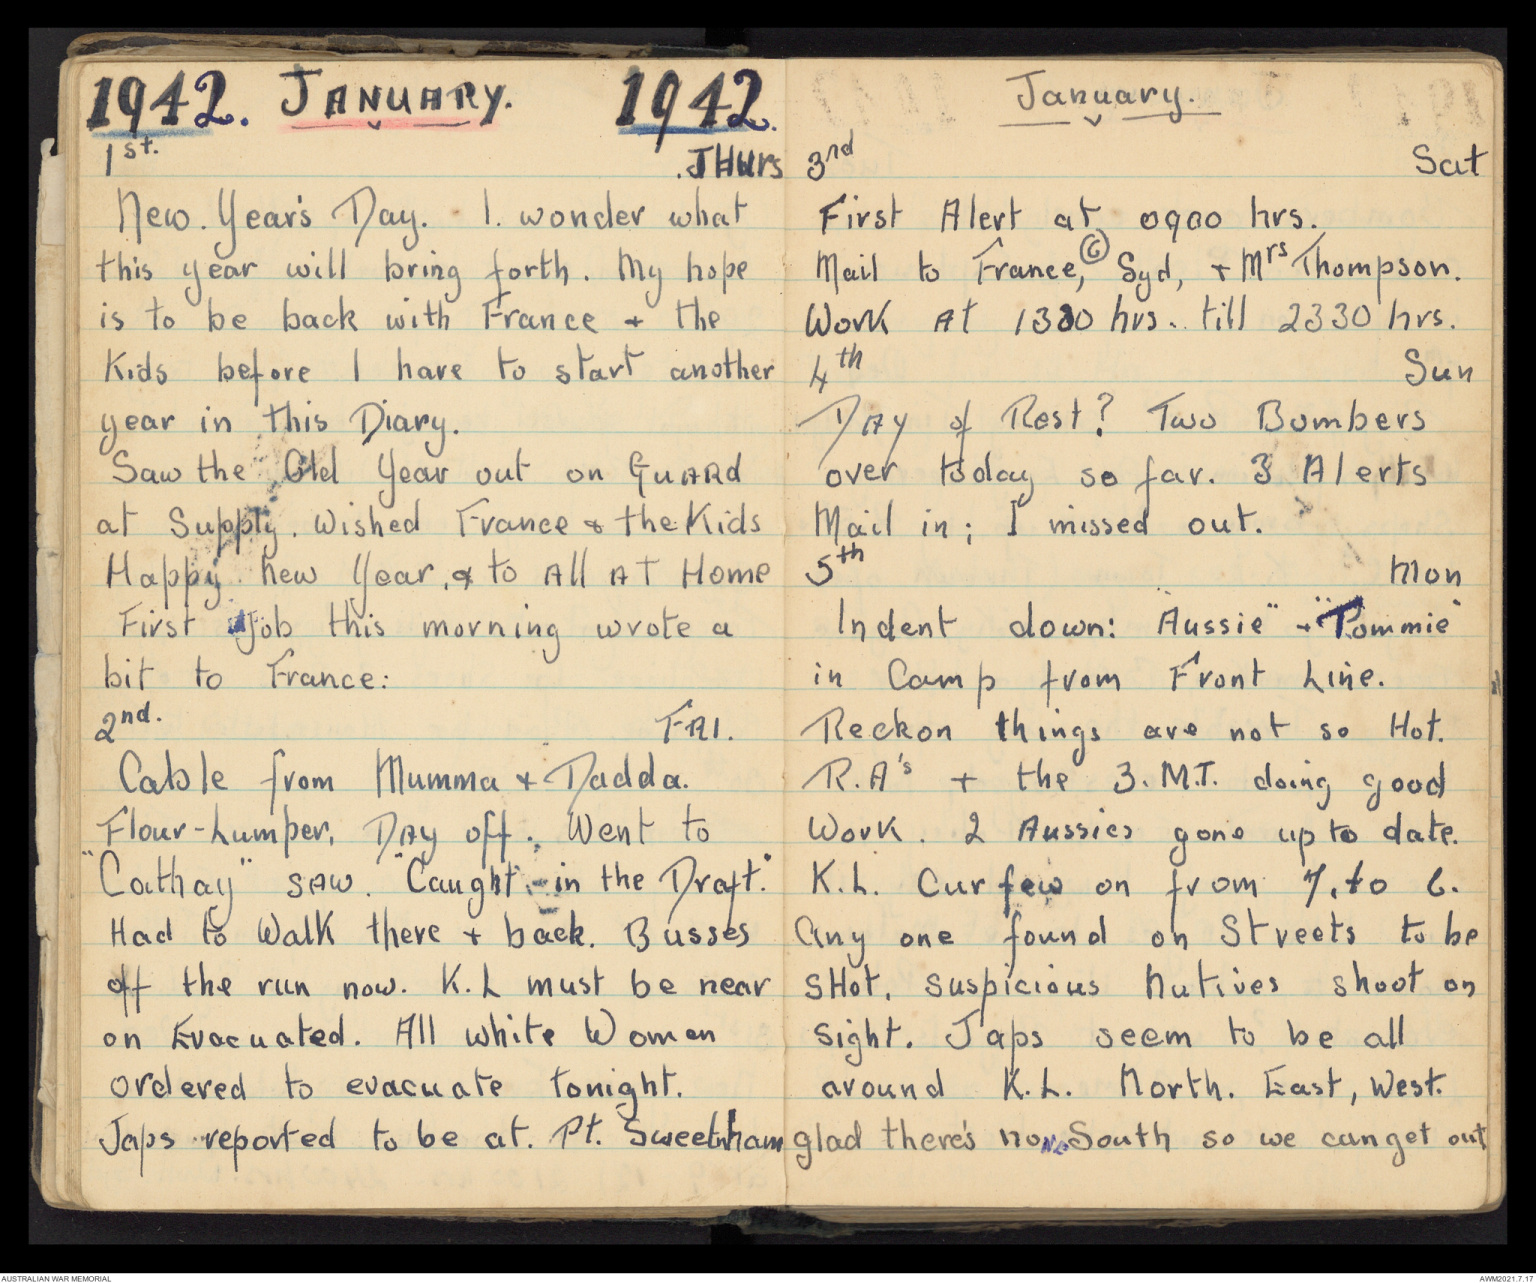 1942. JANUARY. 1942.
1st. THURS
New. Year's Day. I. wonder what
this year will bring forth. My hope
is to be back with France + the
Kids before I have to start another
year in this Diary.
Saw the Old Year out on GUARD
at Supply. Wished France & the Kids
Happy New Year, & to All AT Home
First Job this morning wrote a
bit to France:
2nd. FRI.
Cable from Mumma + Dadda.
Flour-Lumper, DAY off. Went to
"Cathay" SAW. "Caught in the Draft."
Had to Walk there + back. Busses
off the run now. K.L must be near
on Evacuated. All white Women
ordered to evacuate tonight.
Japs reported to be at. Pt. Sweetnham
January.
3rd Sat
First Alert at 0900 hrs.
Mail to France, (6) Syd, + Mrs Thompson.
Work At 1330 hrs. till 2330 hrs.
4th Sun
DAY of Rest? Two Bombers
over today so far. 3 Alerts
Mail in; I missed out.
5th Mon
Indent down: "Aussie" + "Pommie"
in Camp from Front Line.
Reckon things are not so Hot.
R.A's + the 3.M.T. doing good
Work. 2 Aussies gone up to date.
K.L. Curfew on from 7. to 6.
Any one found on Streets to be
SHot. Suspicious Natives shoot on
sight. Japs seem to be all
around K.L. North. East, West.
glad there's none South so we can get out
AUSTRALIAN WAR MEMORIAL AWM2021.7.17